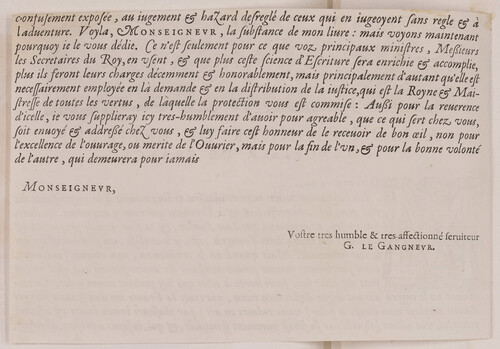 confusement exposée, au iugement & hazard desreglé de ceux qui en iugeoyent sans regle & à
l'aduenture. Voyla, MONSEIGNEVR, la substance de mon liure : mais voyons maintenant
pourquoy ie le vous dédie. Ce n'est seulement pour ce que voz principaux ministres, Messieurs
les Secretaires du Roy, en vsent, & que plus ceste science d'Escriture sera enrichie & accomplie,
plus ils feront leurs charges décemment & honorablement, mais principalement d'autant qu'elle est
necessairement employée en la demande & en la distribution de la iustice, qui est la Royne & Mai-
stresse de toutes les vertus, de laquelle la protection vous est commise : Aussi pour la reuerence
d'icelle, ie vous supplieray icy tres-humblement d'auoir pour agreable, que ce qui sert chez vous,
soit enuoyé & addressé chez vous, & luy faire cest honneur de le receuoir de bon œil, non pour
l'excellence de l'ouurage, ou merite de l'Ouurier, mais pour la fin de l'vn, & pour la bonne volonté
de l'autre, qui demeurera pour iamais
MONSEIGNEVR,
Vostre tres humble & tres-affectionné seruiteur
G. LE GANGNEVR.